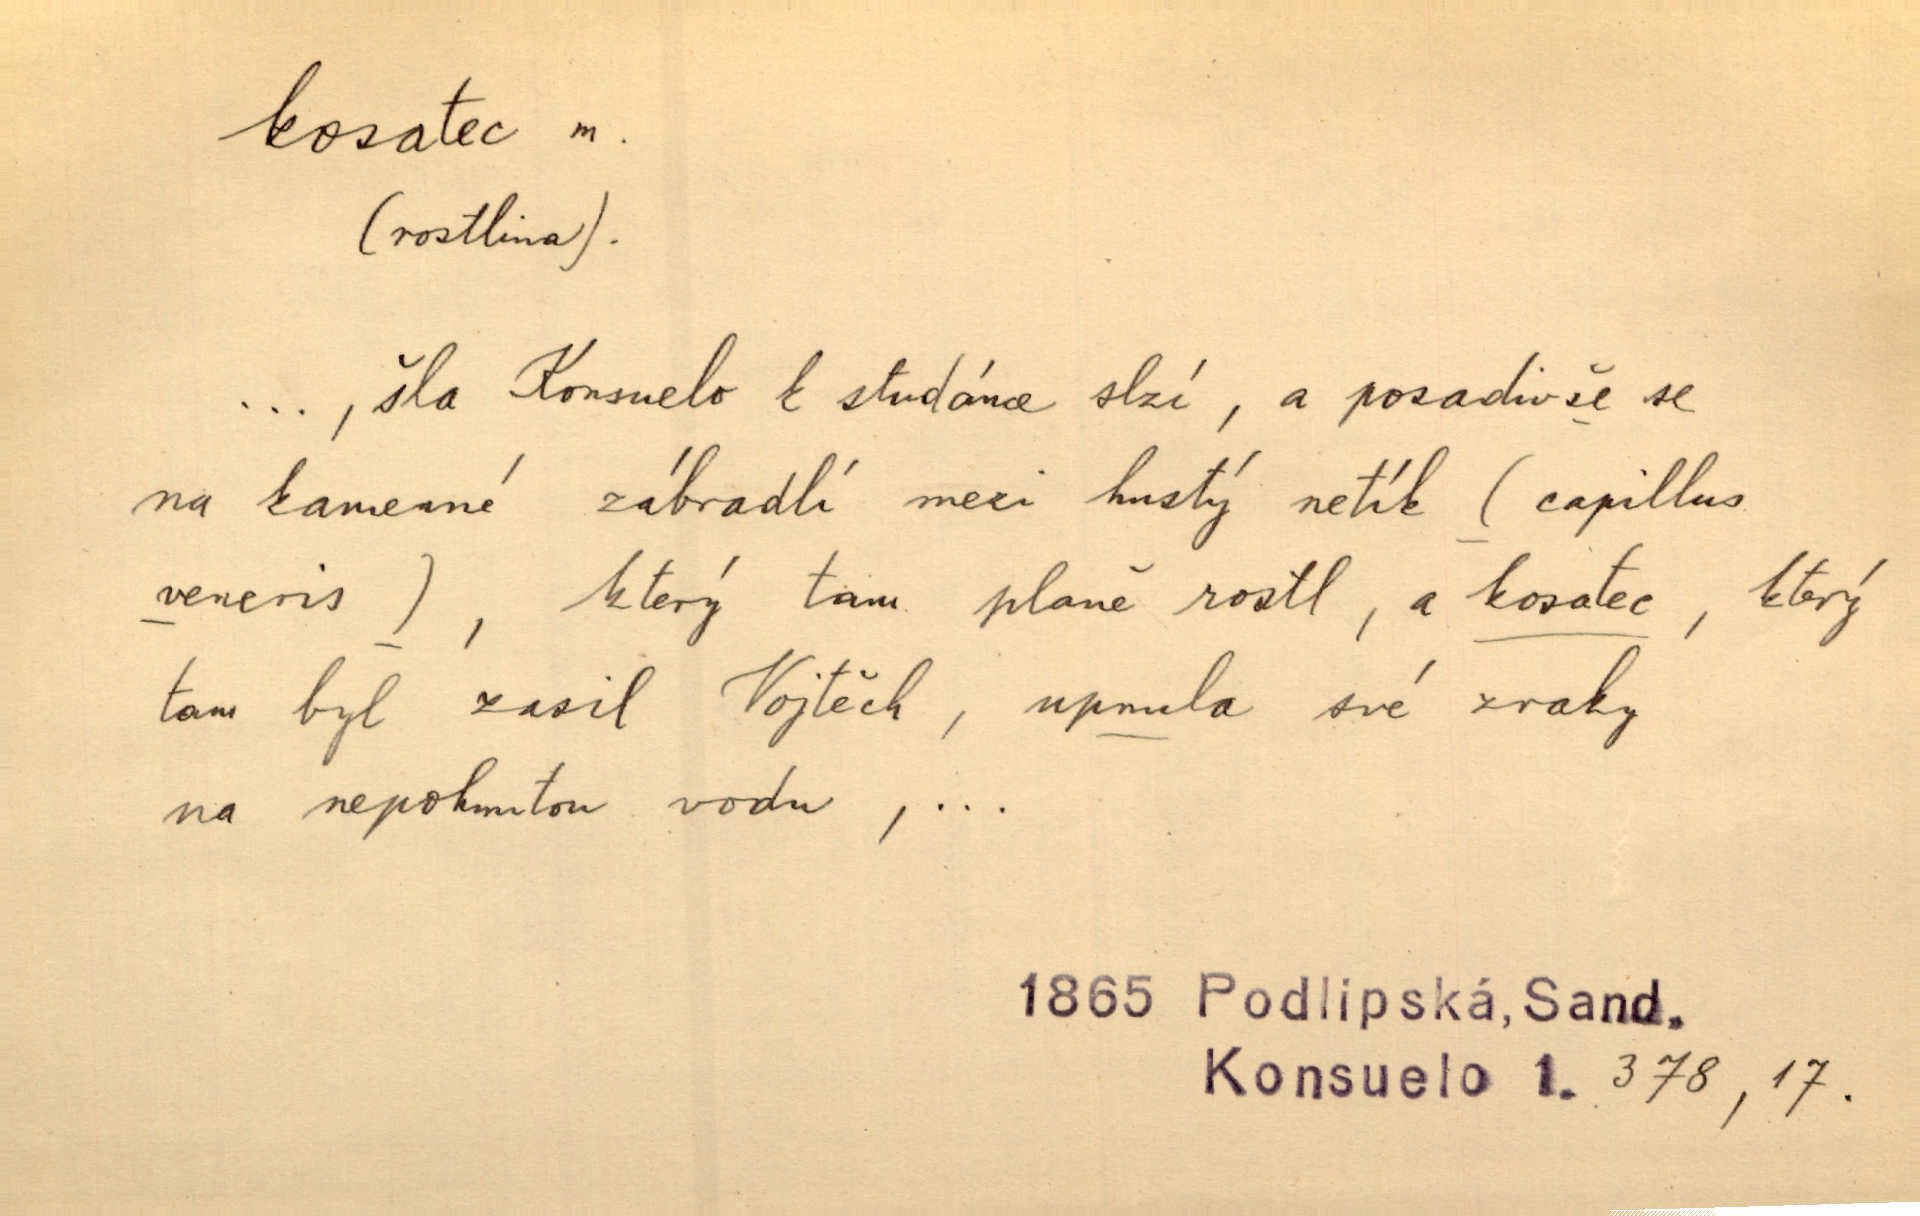 kosatec m.
(rostlina).
..., šla Konsuelo k studánce slzí, a posadivše se
na kamenné zábradlí mezi hustý netík (capillus
veneris), který tam planě rostl, a kosatec, který
tam byl zasil Vojtěch, upnula své zraky
na nepohnutou vodu, ...
1865 Podlipská, Sand.
Konsuelo 1. 378, 17.